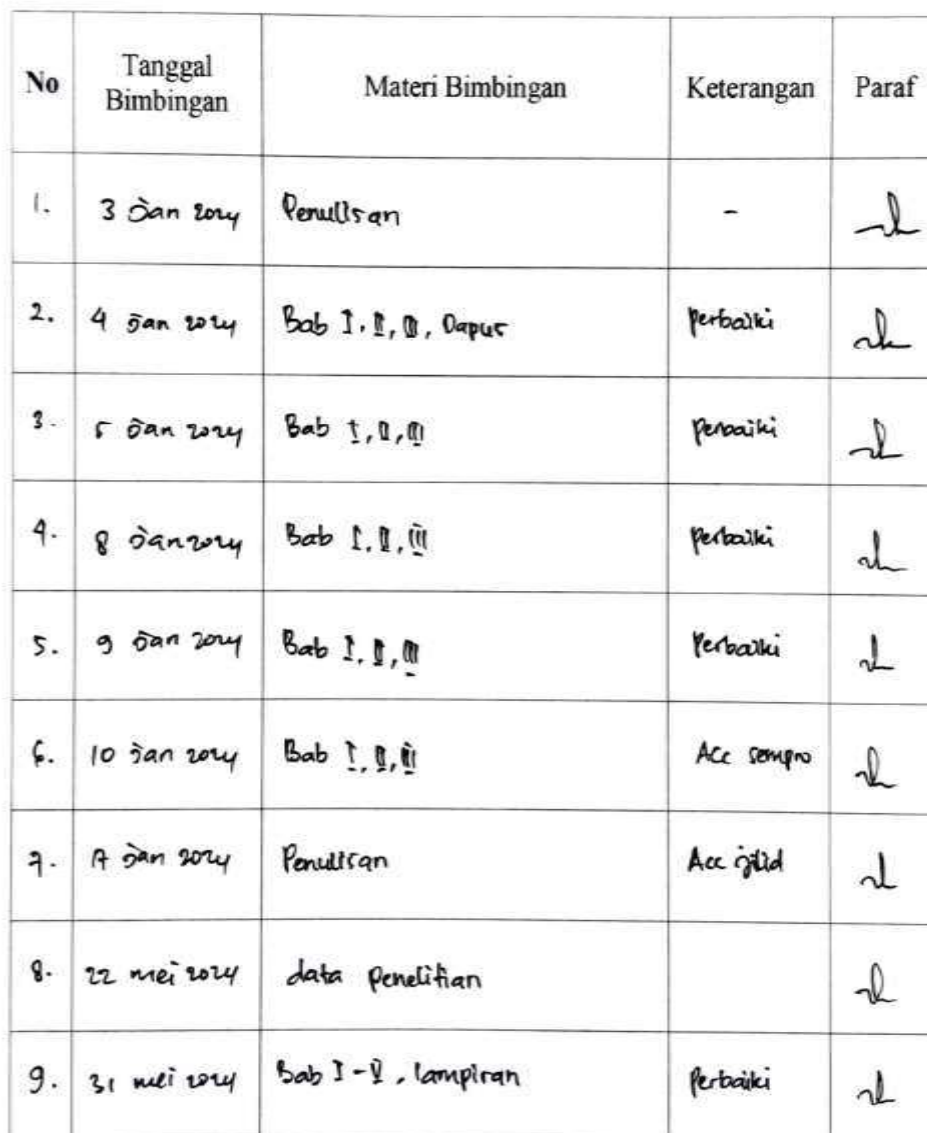 No Tanggal Bimbingan Materi Bimbingan Keterangan Paraf
1. 3 Jan 2024 Penulisan -
2. 4 Jan 2024 Bab I, II, III, Dapus perbaiki
3. 5 Jan 2024 Bab I, II, III perbaiki
4. 8 Jan 2024 Bab I, II, III perbaiki
5. 9 Jan 2024 Bab I, II, III Perbaiki
6. 10 Jan 2024 Bab I, II, III Acc sempro
7. 17 Jan 2024 Penulisan Acc jilid
8. 22 mei 2024 data penelitian
9. 31 mei 2024 Bab I - V, lampiran Perbaiki